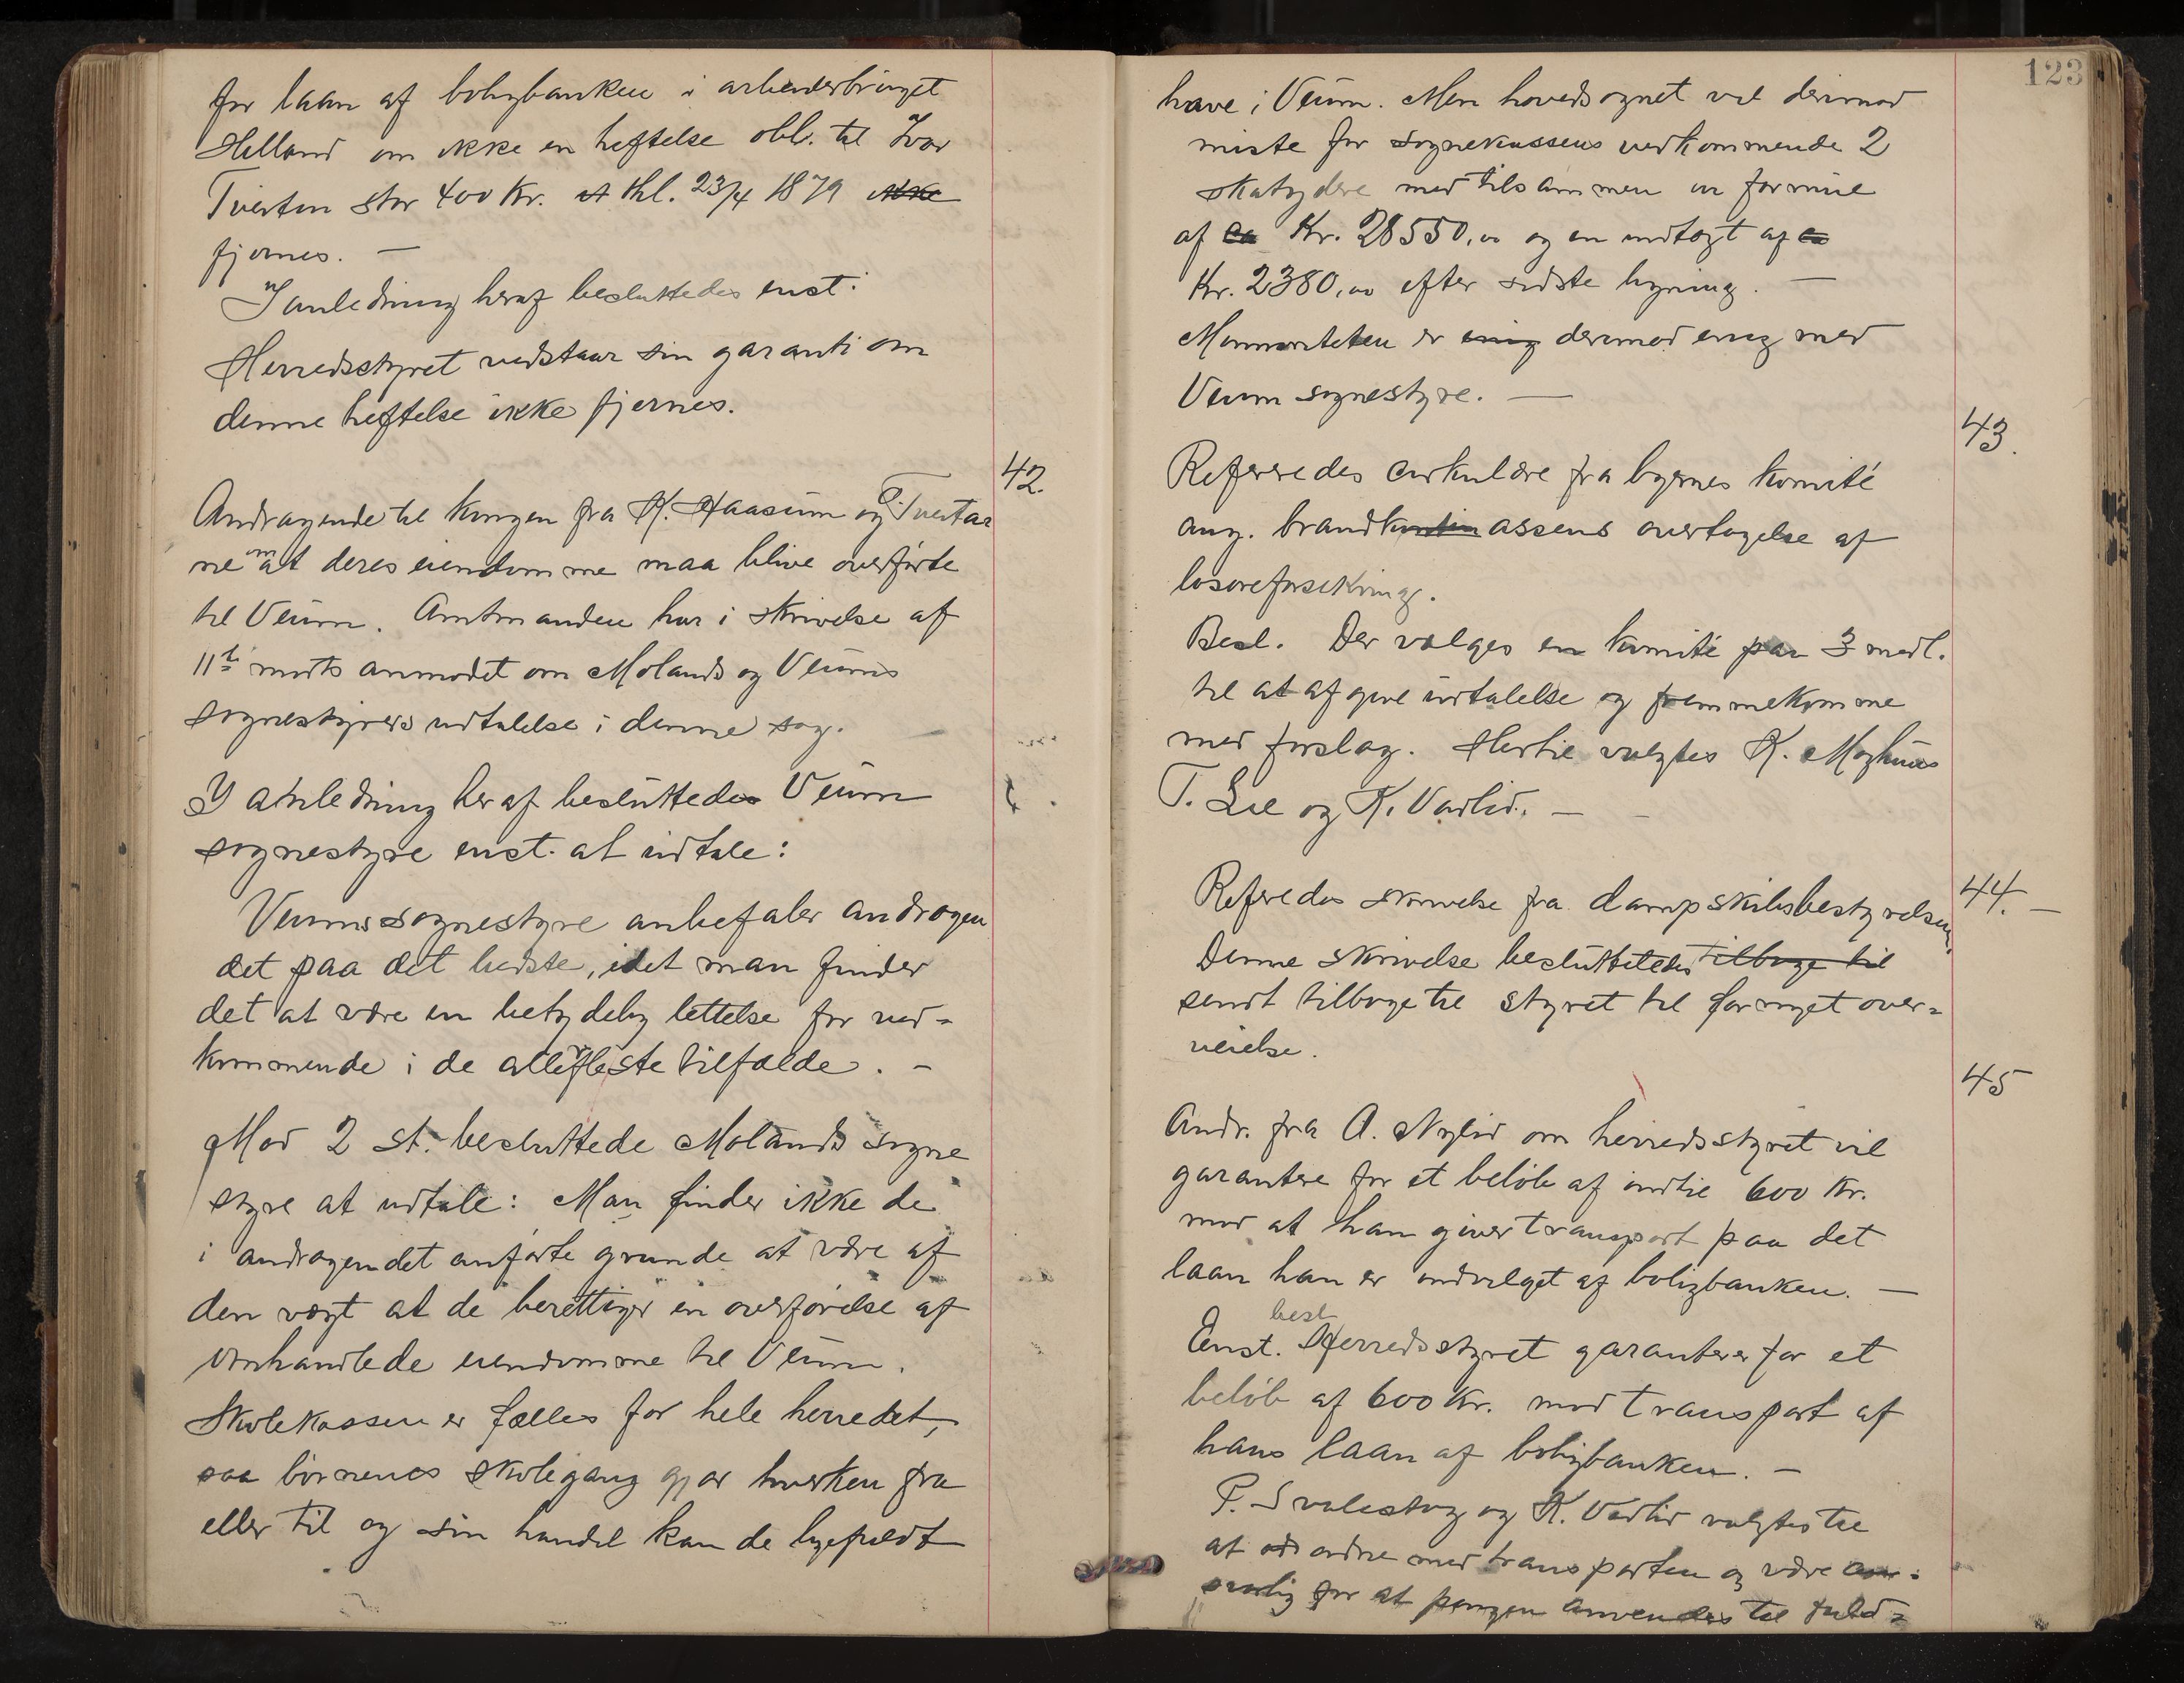 for laan af boligbanken i arbeiderbruget
Helland om ikke en heftelse obl. til Ivar
Tveiten stor 400 Kr. thl. 23/4 1879 ikke
fjernes. —
I anledning heraf besluttedes enst:
Herredsstyret vedstaar sin garanti om
denne heftelse ikke fjernes.
42.
Andragende til kongen fra K. Haasum og P. Tveitar
ne om at deres eiendomme maa blive overførte
til Veum. Amtmanden har i skrivelse af
11te marts anmodet om Molands og Veums
sognestyrers udtalelse i denne sag.
I anledning heraf besluttedes Veum
sognestyre enst. at udtale:
Veums sognestyre anbefaler andragen
det paa det bedste, idet man finder
det at være en betydelig lettelse for ved=
kommende i de allerfleste tilfælde. —
Mod 2 st. besluttede Molands sogne
styre at udtale: Man finder ikke de
i andragendet anførte grunde at være af
den vægt at de berettiger en overførelse af
omhandlede eiendomme til Veum.
Skolekassen er fælles for hele herredet,
saa børnenes skolegang gjør hverken fra
eller til og sin handel kan de ligefuldt
123
have i Veum. Men hovedsognet vil derimod
miste for sognekassens vedkommende 2
skatydere med tilsammen en formue
af ca Kr. 28550,00 og en indtægt af ca
Kr. 2380,00 efter sidste ligning. —
Minoriteten er enig derimod enig med
Veum sognestyre. —
43.
Refereredes cirkulære fra byernes komité
ang. brandkassens overtagelse af
løsøreforsikring.
Besl. Der vælges en komité paa 3 medl.
til at afgive udtalelse og fremmekomme
med forslag. Hertil valgtes K. Moghus
T. Lie og K. Vadlid. —
44.
Referedes skrivelse fra dampskibsbestyrelsen.
Denne skrivelse besluttetedes tilbage til
sendt tilbage til styret til fornyet over=
veielse.
45
Andr. fra A. Nylid om herredsstyret vil
garantere for et beløb af indtil 600 Kr.
mod at han giver transport paa det
laan han er indvilget af boligbanken. —
Enst. besl Herredsstyret garanterer for et
beløb af 600 Kr. mod transport af
hans laan af boligbanken. —
P. Svalestog og K. Vadlid valgtes til
at ordne med transporten og være an=
svarlig for at pengen anvendes til fuld=